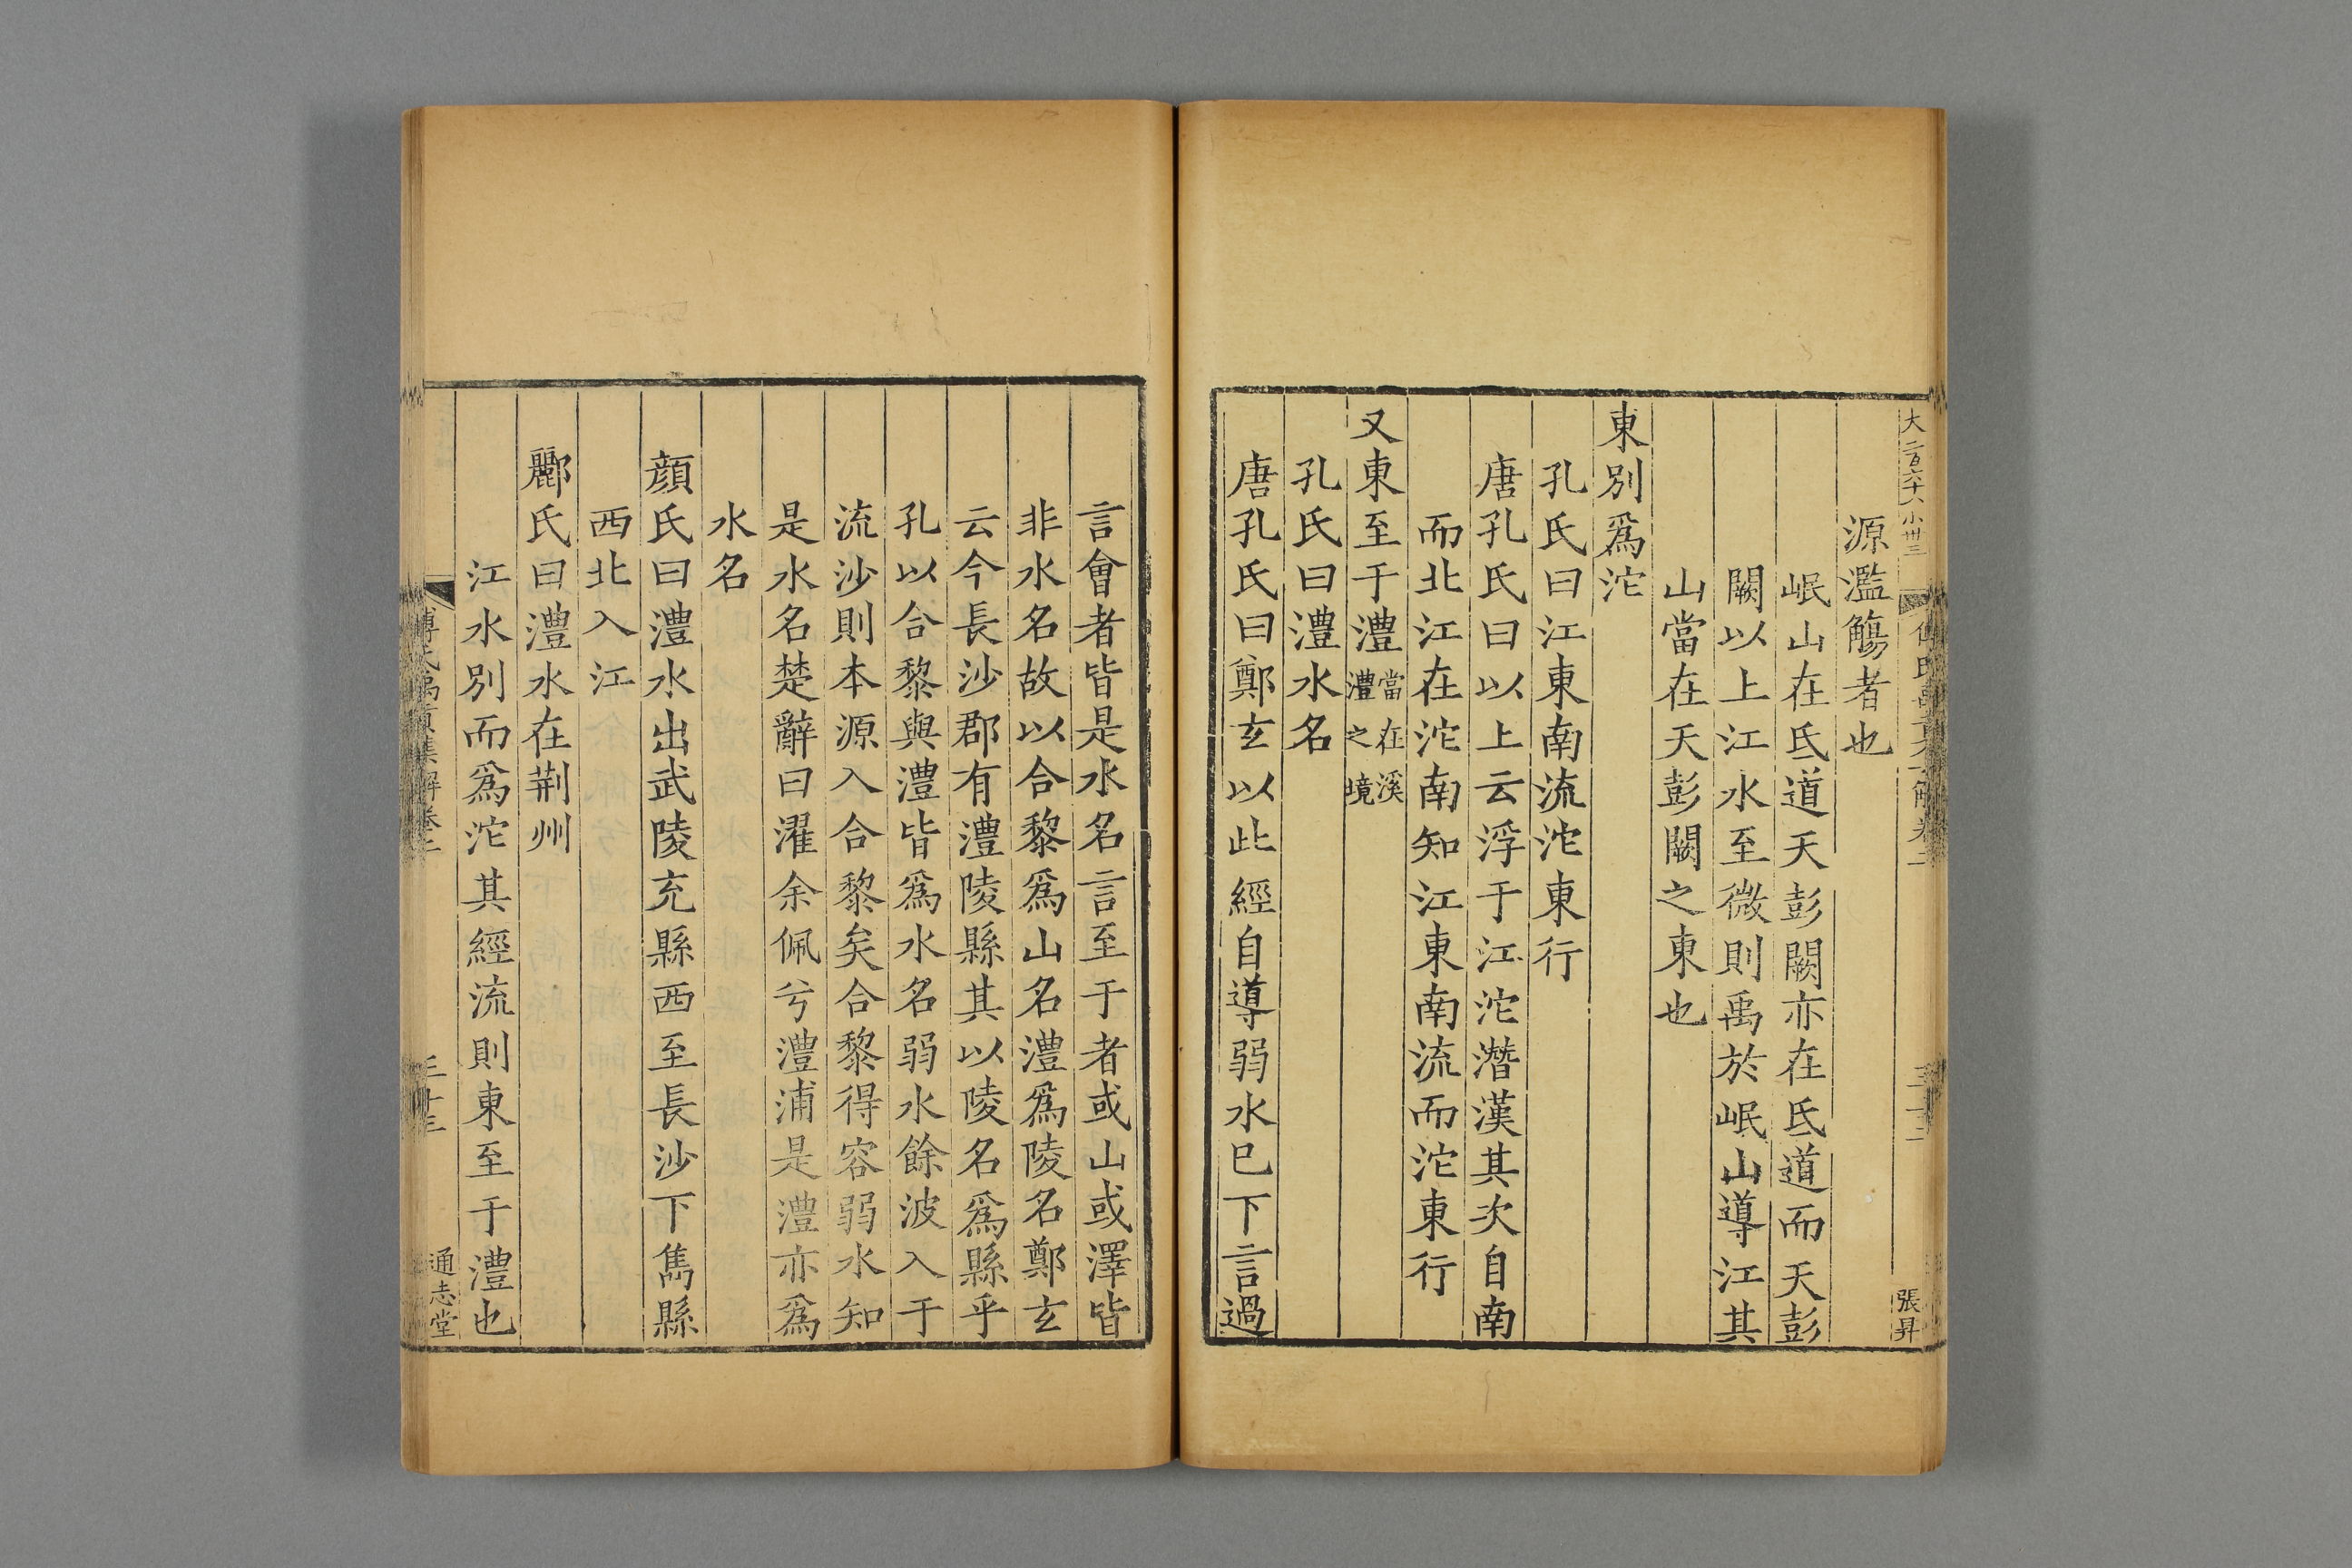 大二百六十八小卅三
張昇
源濫觴者也
岷山在氐道天彭闕亦在氐道而天彭
闕以上江水至微則禹於岷山導江其
山當在天彭闕之東也
東別爲沱
孔氏曰江東南流沱東行
唐孔氏曰以上云浮于江沱潛漢其次自南
而北江在沱南知江東南流而沱東行
又東至于澧當在溪澧之境
孔氏曰澧水名
唐孔氏曰鄭玄以此經自導弱水巳下言過
言會者皆是水名言至于者或山或澤皆
非水名故以合黎爲山名澧爲陵名鄭玄
云今長沙郡有澧陵縣其以陵名爲縣乎
孔以合黎與澧皆爲水名弱水餘波入于
流沙則本源入合黎矣合黎得容弱水知
是水名楚辭曰濯余佩兮澧浦是澧亦爲
水名
顔氏曰澧水出武陵充縣西至長沙下雋縣
西北入江
酈氏曰澧水在荆州
江水別而爲沱其經流則東至于澧也
通志堂